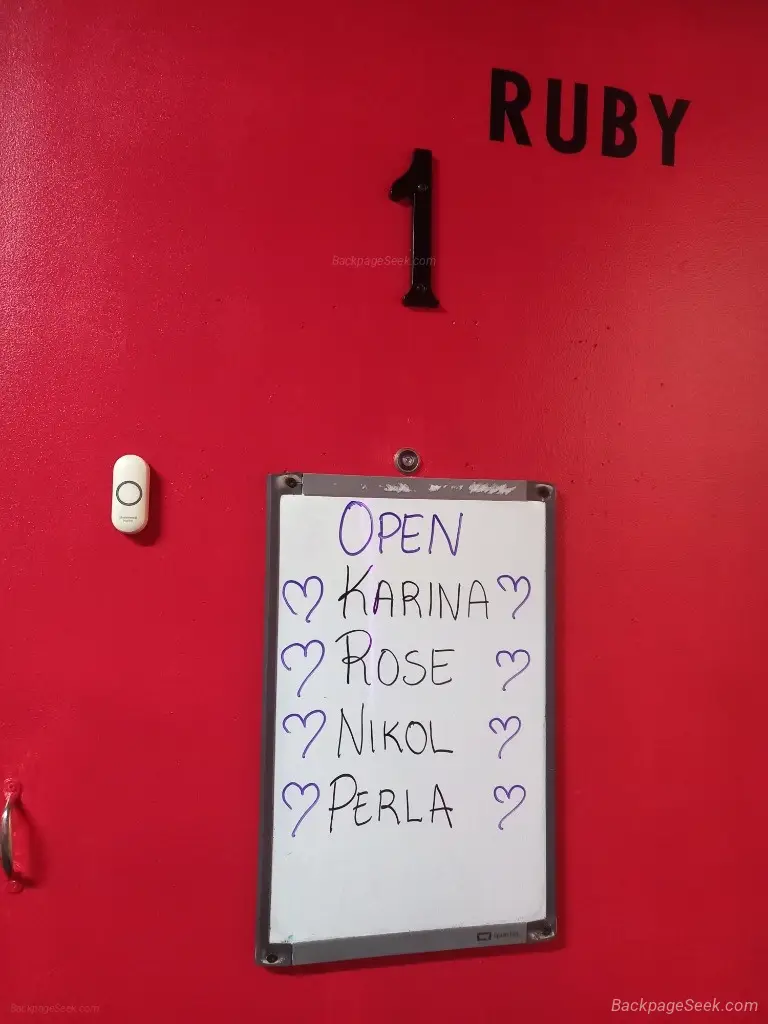 RUBY
1
BackpageSeek.com
OPEN
KARINA
ROSE
NIKOL
PERLA
BackpageSeek.com
BackpageSeek.com